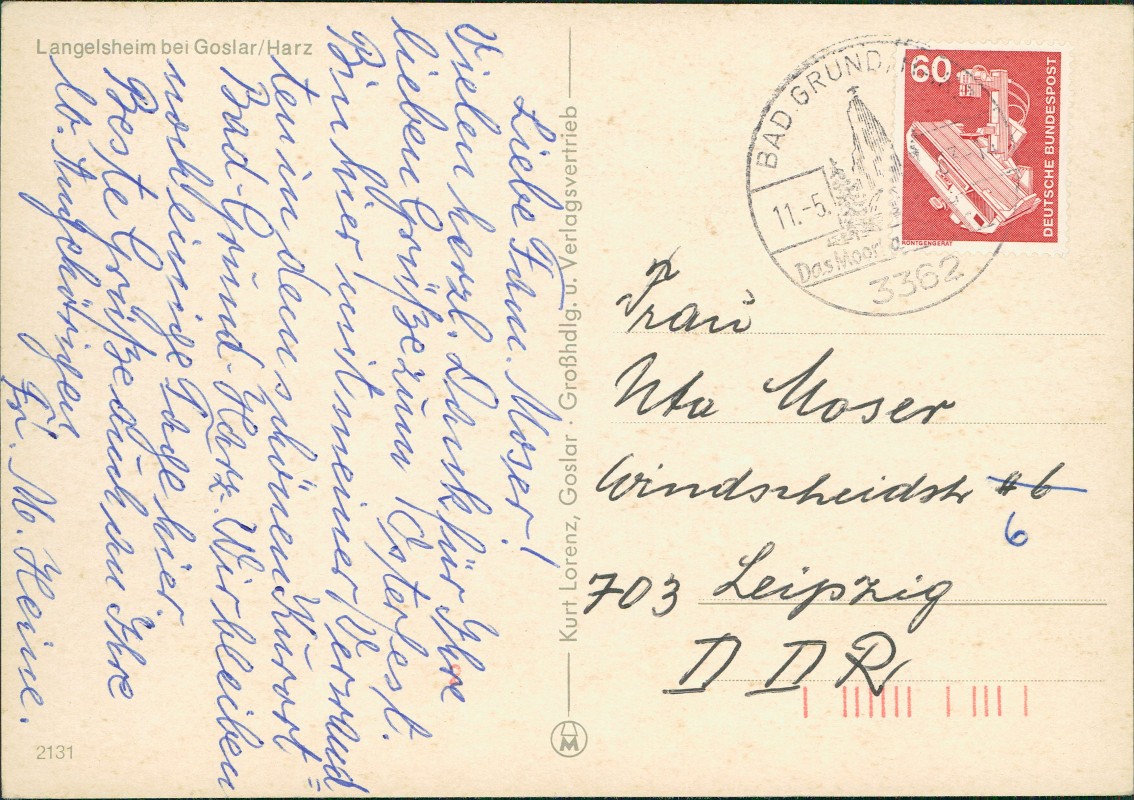 Langelsheim bei Goslar/Harz
Liebe Frau Moser!
Vielen herzl. Dank für Ihre
lieben Grüße zum Osterfest.
Bin hier mit meiner Verwand=
ten in dem schönen Kurort
Bad-Grund-Harz. Wir bleiben
noch einige Tage hier
Beste Grüße auch an Ihre
lb. Angehörigen
Fr. M. Heine.
2131
Kurt Lorenz, Goslar · Großhdlg. u. Verlagsvertrieb
M
BAD GRUND
11.-5.
Das Moor
3362
60
DEUTSCHE BUNDESPOST
RÖNTGENGERÄT
Frau
Uta Moser
Windscheidstr 6
703 Leipzig
DDR